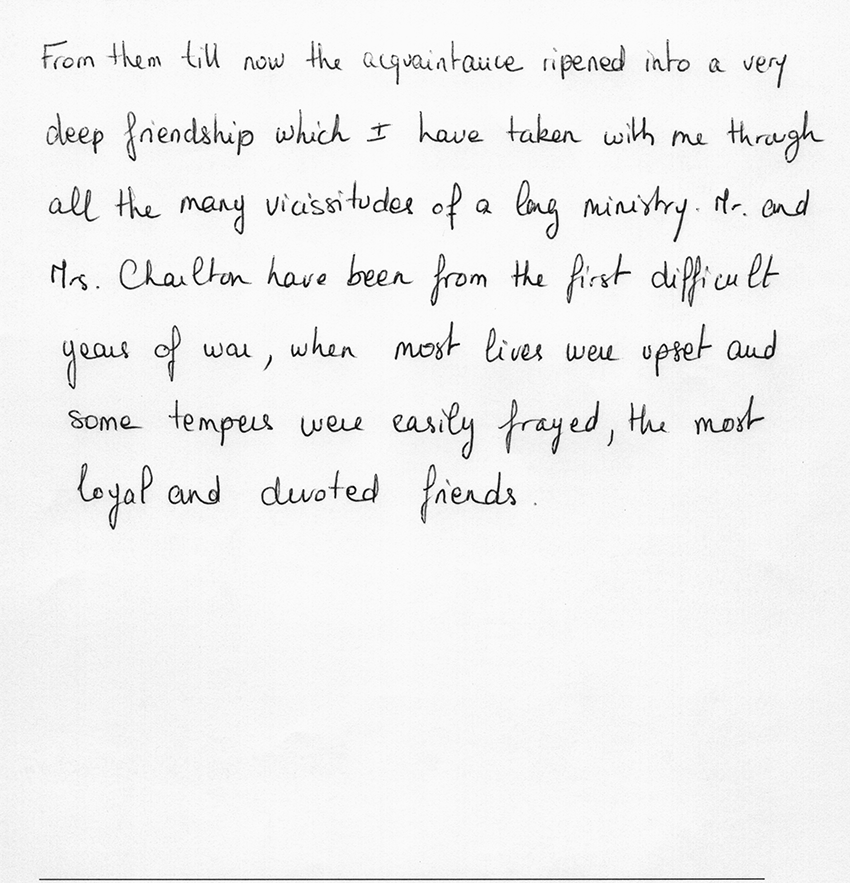 From them till now the acquaintance ripened into a very
deep friendship which I have taken with me through
all the many vicissitudes of a long ministry. Mr. and
Mrs. Charlton have been from the first difficult
years of war, when most lives were upset and
some tempers were easily frayed, the most
loyal and devoted friends.